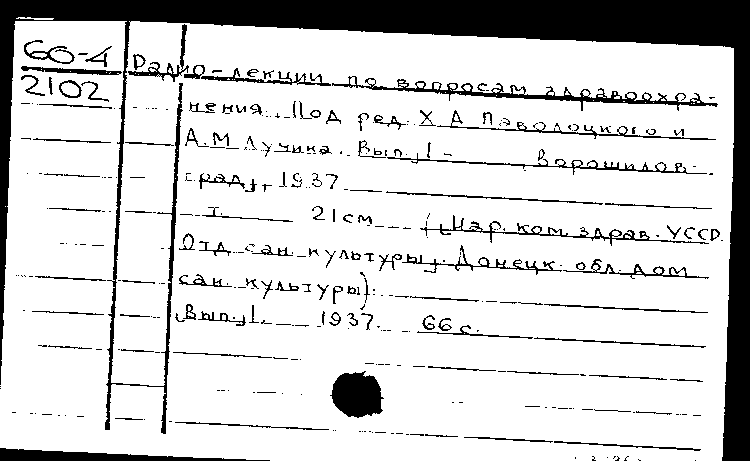 60-4
2102
Радио-лекции по вопросам здравоохра-
нения. Под ред. Х А Паволоцкого и
А.М Лучина. Вып. 1 - Ворошилов-
град, 1937
т. 21см (Нар. ком. здрав. УССР.
Отд сан культуры, Донецк. обл. дом
сан. культуры).
Вып. 1. 1937. 66 с.